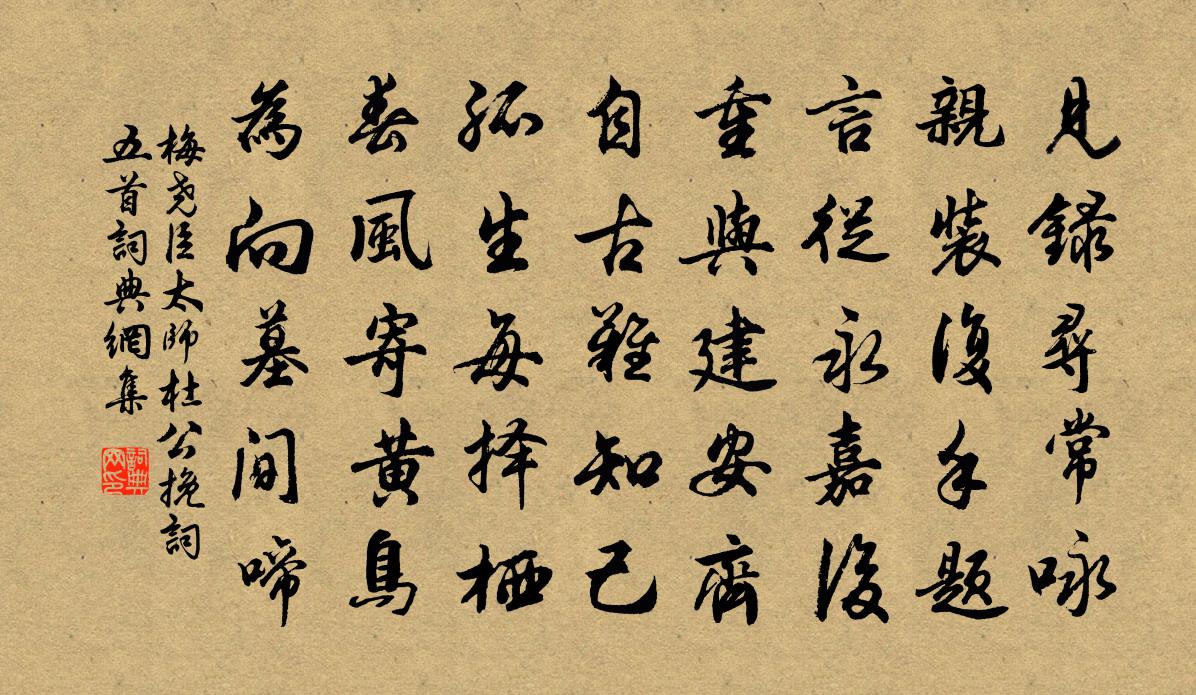 見錄尋常咏
親裝復手題
言從永嘉後
重與建安齊
自古難知己
孤生每擇栖
春風寄黄鳥
為向墓間啼
梅堯臣太師杜公挽詞
五首詞典網集
詞典网印